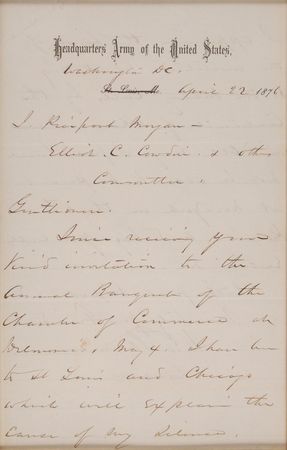 Headquarters Army of the United States,
Washington DC.
St. Louis, Mo. April 22 1876
J. Pierpont Morgan -
Elliot C. Cowdin & other
Committee,
Gentlemen.
Since receiving your
Kind invitation to the
Annual Banquet of the
Chamber of Commerce at
May 4. I have been
to St Louis and Chicago
which will explain the
cause of my silence.